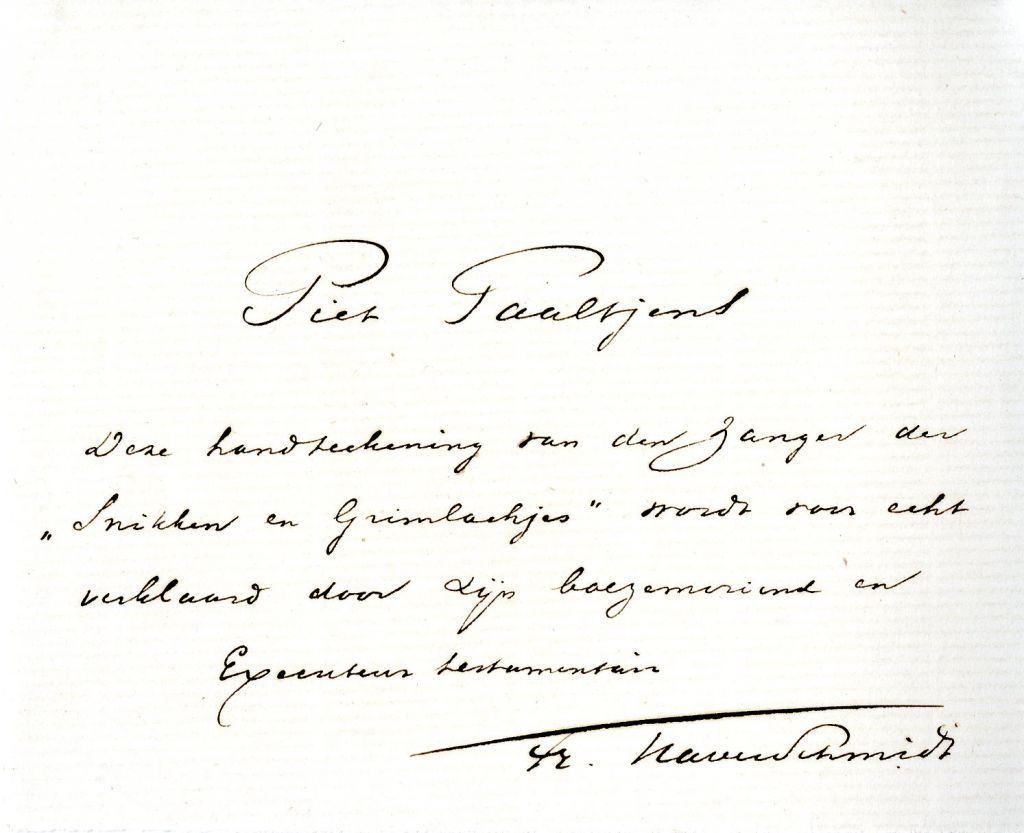 Piet Paaltjens
Deze handteekening van den Zanger der
„Snikken en Grimlachjes" wordt voor echt
verklaard door zijn boezemvriend en
Executeur testamentair
Fr. HaverSchmidt